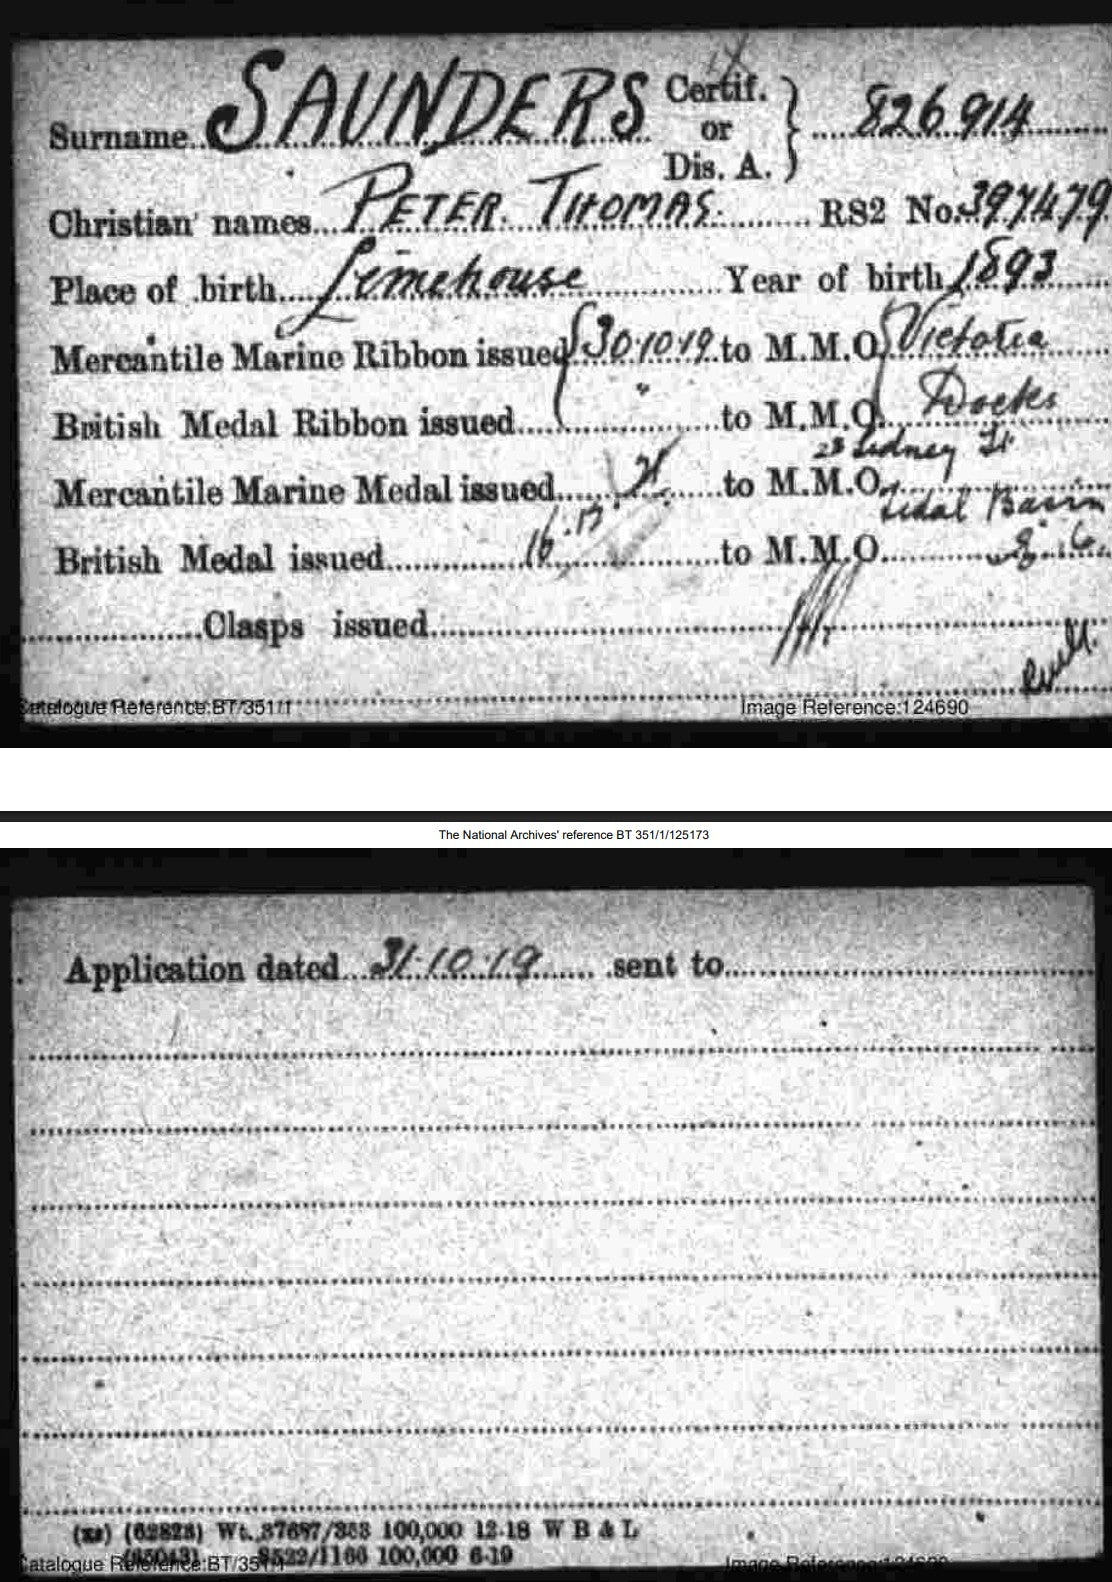 SAUNDERS Certif.
Surname or 826914
Dis. A.
Christian names PETER THOMAS RS2 No. 397479
Place of birth Limehouse Year of birth 1893
Mercantile Marine Ribbon issued 30.10.19 to M.M.O. Victoria
British Medal Ribbon issued " to M.M.O. Docks
23 Sidney St
Mercantile Marine Medal issued to M.M.O.
Tidal Basin
British Medal issued 16.17 to M.M.O. 
Clasps issued
Catalogue Reference:BT/351/1 Image Reference:124690
The National Archives' reference BT 351/1/125173
Application dated 31.10.19 sent to
(62828) Wt. 37687/363 100,000 12-18 W B & L
8522/1166 100,000 6-19
Catalogue Reference:BT/351/1 Image Reference:124690